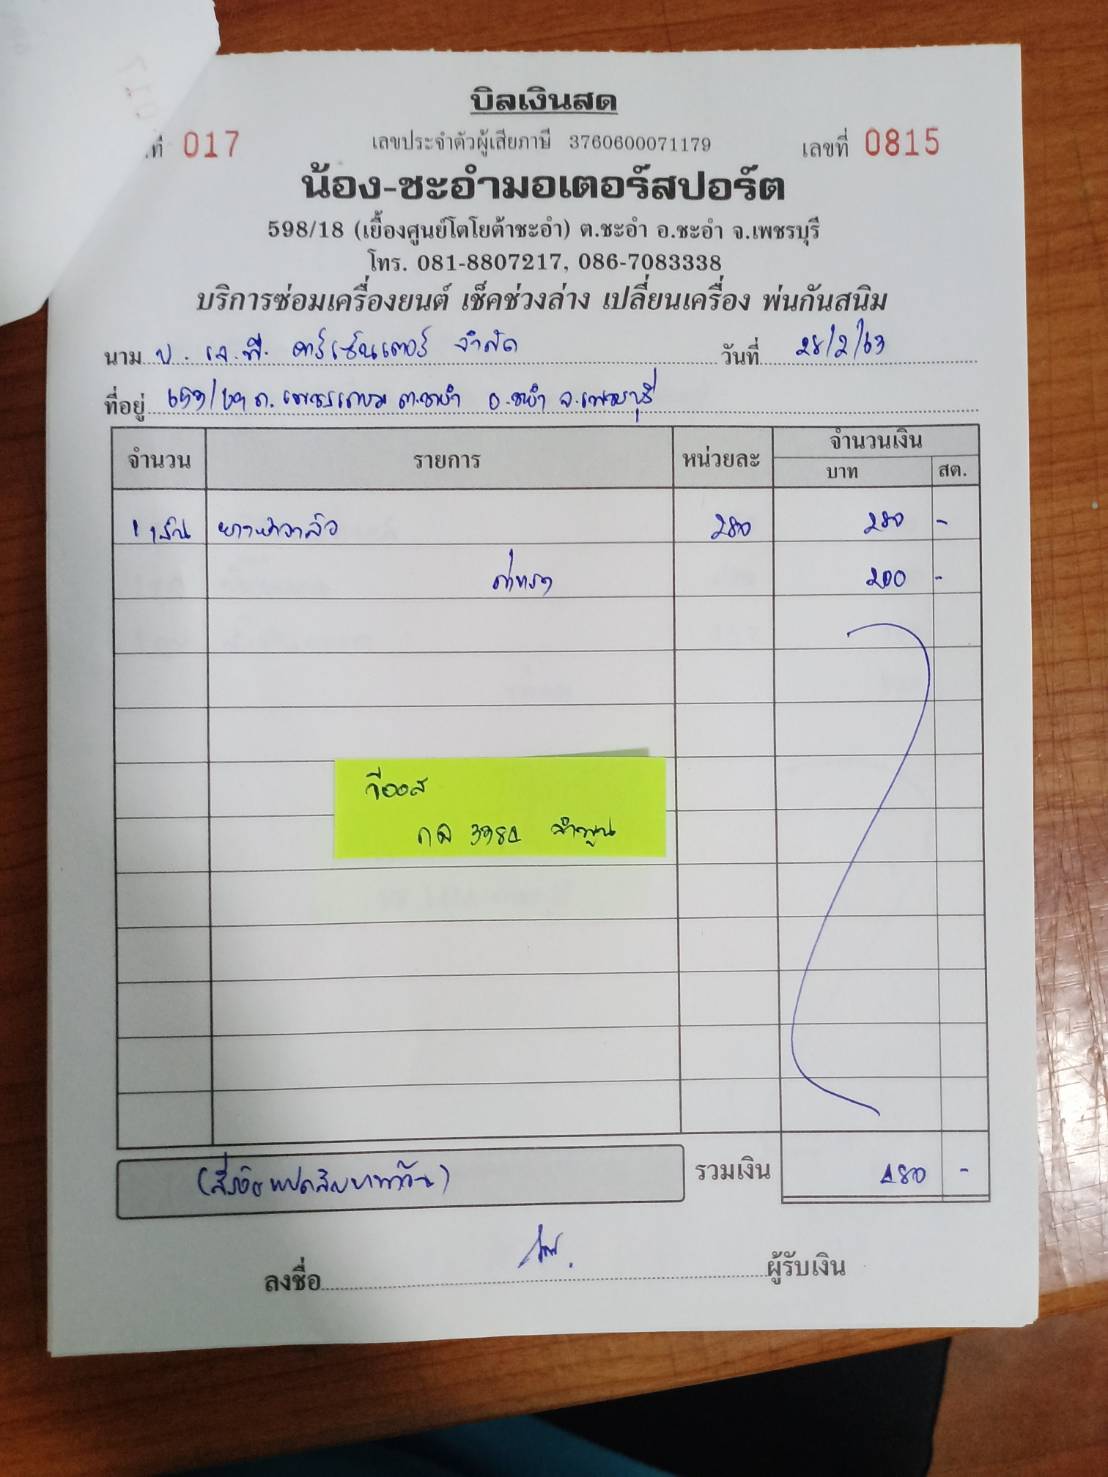 บิลเงินสด
ที่ 017
เลขประจำตัวผู้เสียภาษี 3760600071179
เลขที่ 0815
น้อง-ชะอำมอเตอร์สปอร์ต
598/18 (เยื้องศูนย์โตโยต้าชะอำ) ต.ชะอำ อ.ชะอำ จ.เพชรบุรี
โทร. 081-8807217, 086-7083338
บริการซ่อมเครื่องยนต์ เช็คช่วงล่าง เปลี่ยนเครื่อง พ่นกันสนิม
นาม บ. เจ.พี. คาร์เซ็นเตอร์ จำกัด วันที่ 28/2/63
ที่อยู่ ถ. เพชรเกษม ต.ชะอำ อ.ชะอำ จ.เพชรบุรี
จำนวน รายการ หน่วยละ จำนวนเงิน
บาท สต.
1 เส้น 280 280 -
ค่าแรง 200 -
วีออส
กล 3984 ลำพูน
(สี่ร้อยแปดสิบบาทถ้วน) รวมเงิน 480 -
ลงชื่อ ผู้รับเงิน